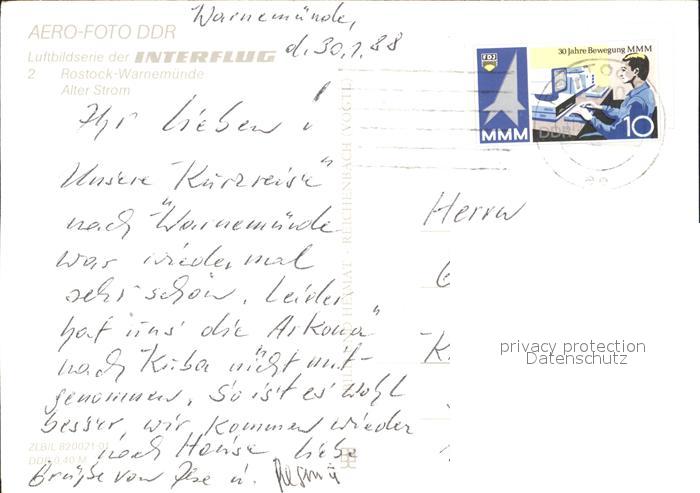 Warnemünde,
d. 30.1.88
AERO-FOTO DDR
Luftbildserie der INTERFLUG
2 Rostock-Warnemünde
Alter Strom
FDJ
30 Jahre Bewegung MMM
MMM
DDR
10
Ihr Lieben!
Unsere "Kurzreise"
nach "Warnemünde
war wieder mal
sehr schön. Leider
hat uns die Arkona"
nach Kuba nicht mit-
genommen. So ist es wohl
besser, wir kommen wieder
nach Hause. Liebe
Grüße von u.
Herrn
K.
BILD UND HEIMAT · REICHENBACH (VOGTL)
privacy protection
Datenschutz
ZLB/L 820021-01
DDR 0,40 M